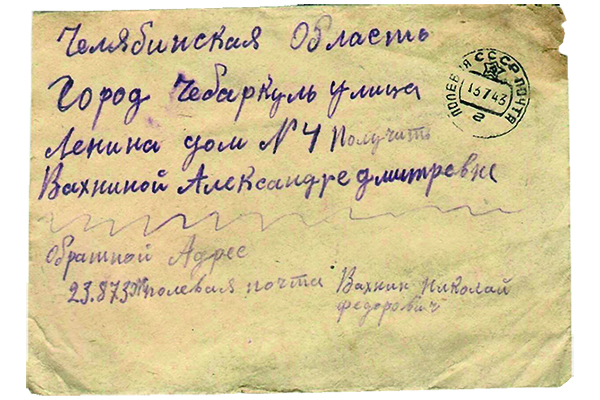 Челябинская Область
Город Чебаркуль улица
Ленина дом N 4 Получить
Вахниной Александре дмитревне
Обратной Адрес
23.873 полевая почта Вахнин Николай
федорович
СССР ПОЛЕВАЯ ПОЧТА
13 7 43
г